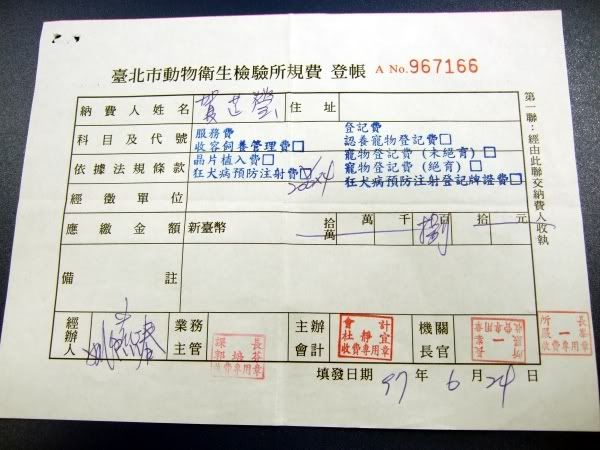 臺北市動物衛生檢驗所規費 登帳 A No.967166
納費人姓名 住址
科目及代號 服務費 登記費
收容飼養管理費□ 認養寵物登記費□
依據法規條款 晶片植入費□ 寵物登記費(未絕育)□
狂犬病預防注射費☑ 200x4 寵物登記費(絕育)□
狂犬病預防注射登記牌證費□
經徵單位
應繳金額 新臺幣 拾萬 萬 千 捌 百 拾 元
備註
經辦人 業務主管 主辦會計 機關長官
會計
杜靜宜
收費專用章
填發日期 97 年 6 月 24 日
第一聯:經由此聯交納費人收執